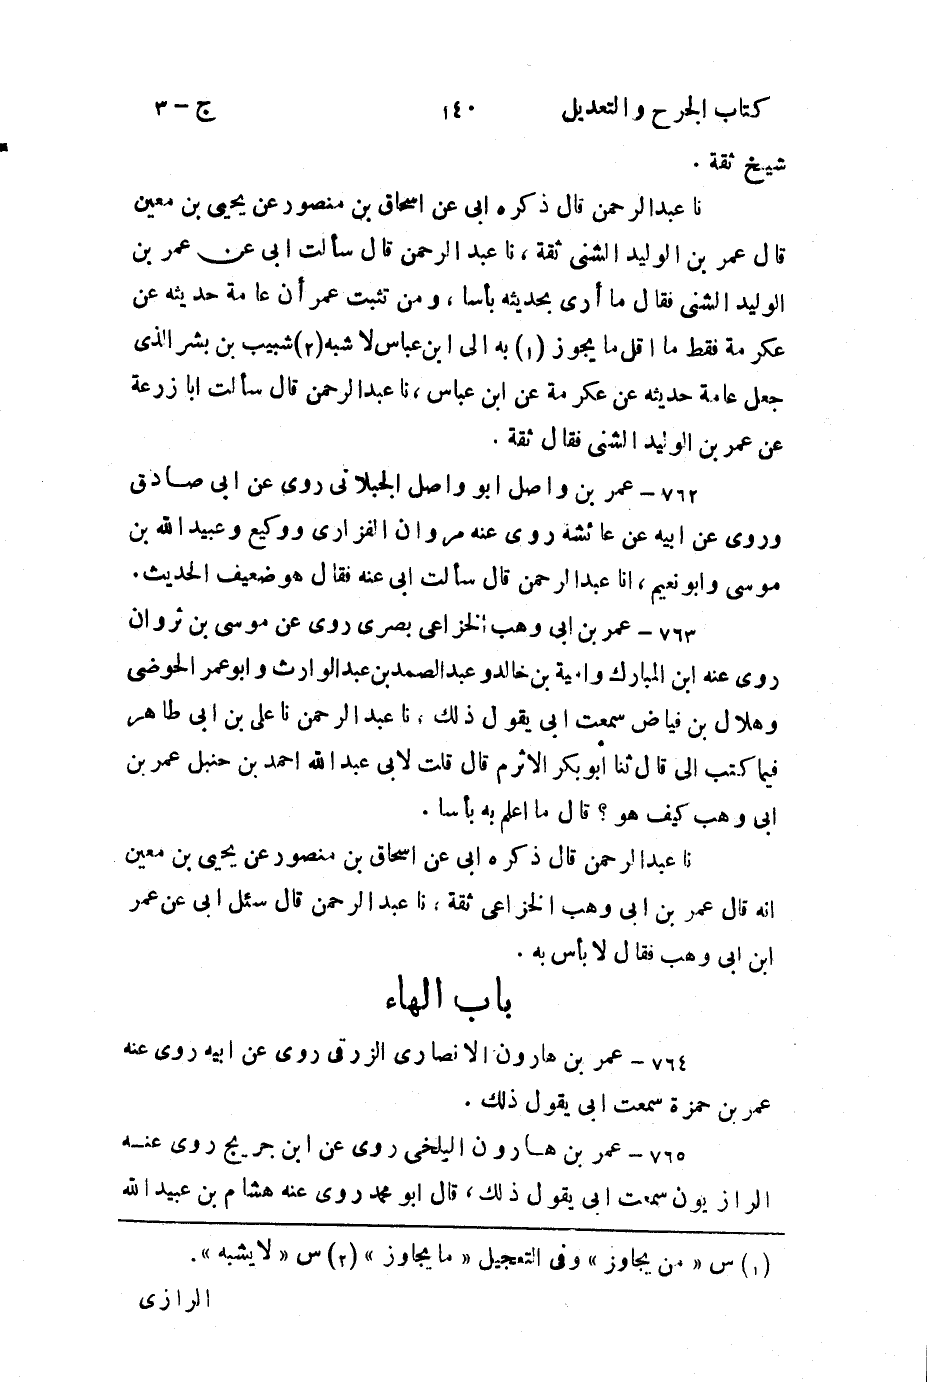 كتاب الجرح والتعديل ١٤٠ ج - ٣
شيخ ثقة .
نا عبدالرحمن قال ذكره ابى عن اسحاق بن منصور عن يحيى بن معين
قال عمر بن الوليد الشنى ثقة ، نا عبد الرحمن قال سألت ابى عن عمر بن
الوليد الشنى فقال ما أرى بحديثه بأسا ، ومن تثبت عمر أن عامة حديثه عن
عكرمة فقط ما اقل ما يجوز (١) به الى ابن عباس لا شبه (٢) شبيب بن بشر الذى
جعل عامة حديثه عن عكرمة عن ابن عباس ، نا عبدالرحمن قال سألت ابا زرعة
عن عمر بن الوليد الشنى فقال ثقة .
٧٦٢ - عمر بن واصل ابو واصل الجبلانى روى عن ابى صادق
وروى عن ابيه عن عائشة روى عنه مروان الفزارى ووكيع وعبيد الله بن
موسى وابو نعيم ، انا عبدالرحمن قال سألت ابى عنه فقال هو ضعيف الحديث .
٧٦٣ - عمر بن ابى وهب الخزاعى بصرى روى عن موسى بن ثروان
روى عنه ابن المبارك وامية بن خالد وعبدالصمد بن عبدالوارث وابو عمر الحوضى
وهلال بن فياض سمعت ابى يقول ذلك ، نا عبد الرحمن نا على بن ابى طاهر
فيما كتب الى قال ثنا أبو بكر الاثرم قال قلت لابى عبد الله احمد بن حنبل عمر بن
ابى وهب كيف هو ؟ قال ما اعلم به بأسا .
نا عبدالرحمن قال ذكره ابى عن اسحاق بن منصور عن يحيى بن معين
انه قال عمر بن ابى وهب الخزاعى ثقة ، نا عبد الرحمن قال سئل ابى عن عمر
ابن ابى وهب فقال لا بأس به .
باب الهاء
٧٦٤ - عمر بن هارون الانصارى الزرقى روى عن ابيه روى عنه
عمر بن حمزة سمعت ابى يقول ذلك .
٧٦٥ - عمر بن هارون البلخى روى عن ابن جريج روى عنه
الرازيون سمعت ابى يقول ذلك ، قال ابو محمد روى عنه هشام بن عبيد الله
(١) س « من يجاوز » وفى التعجيل « ما يجاوز » (٢) س « لا يشبه » .
الرازى